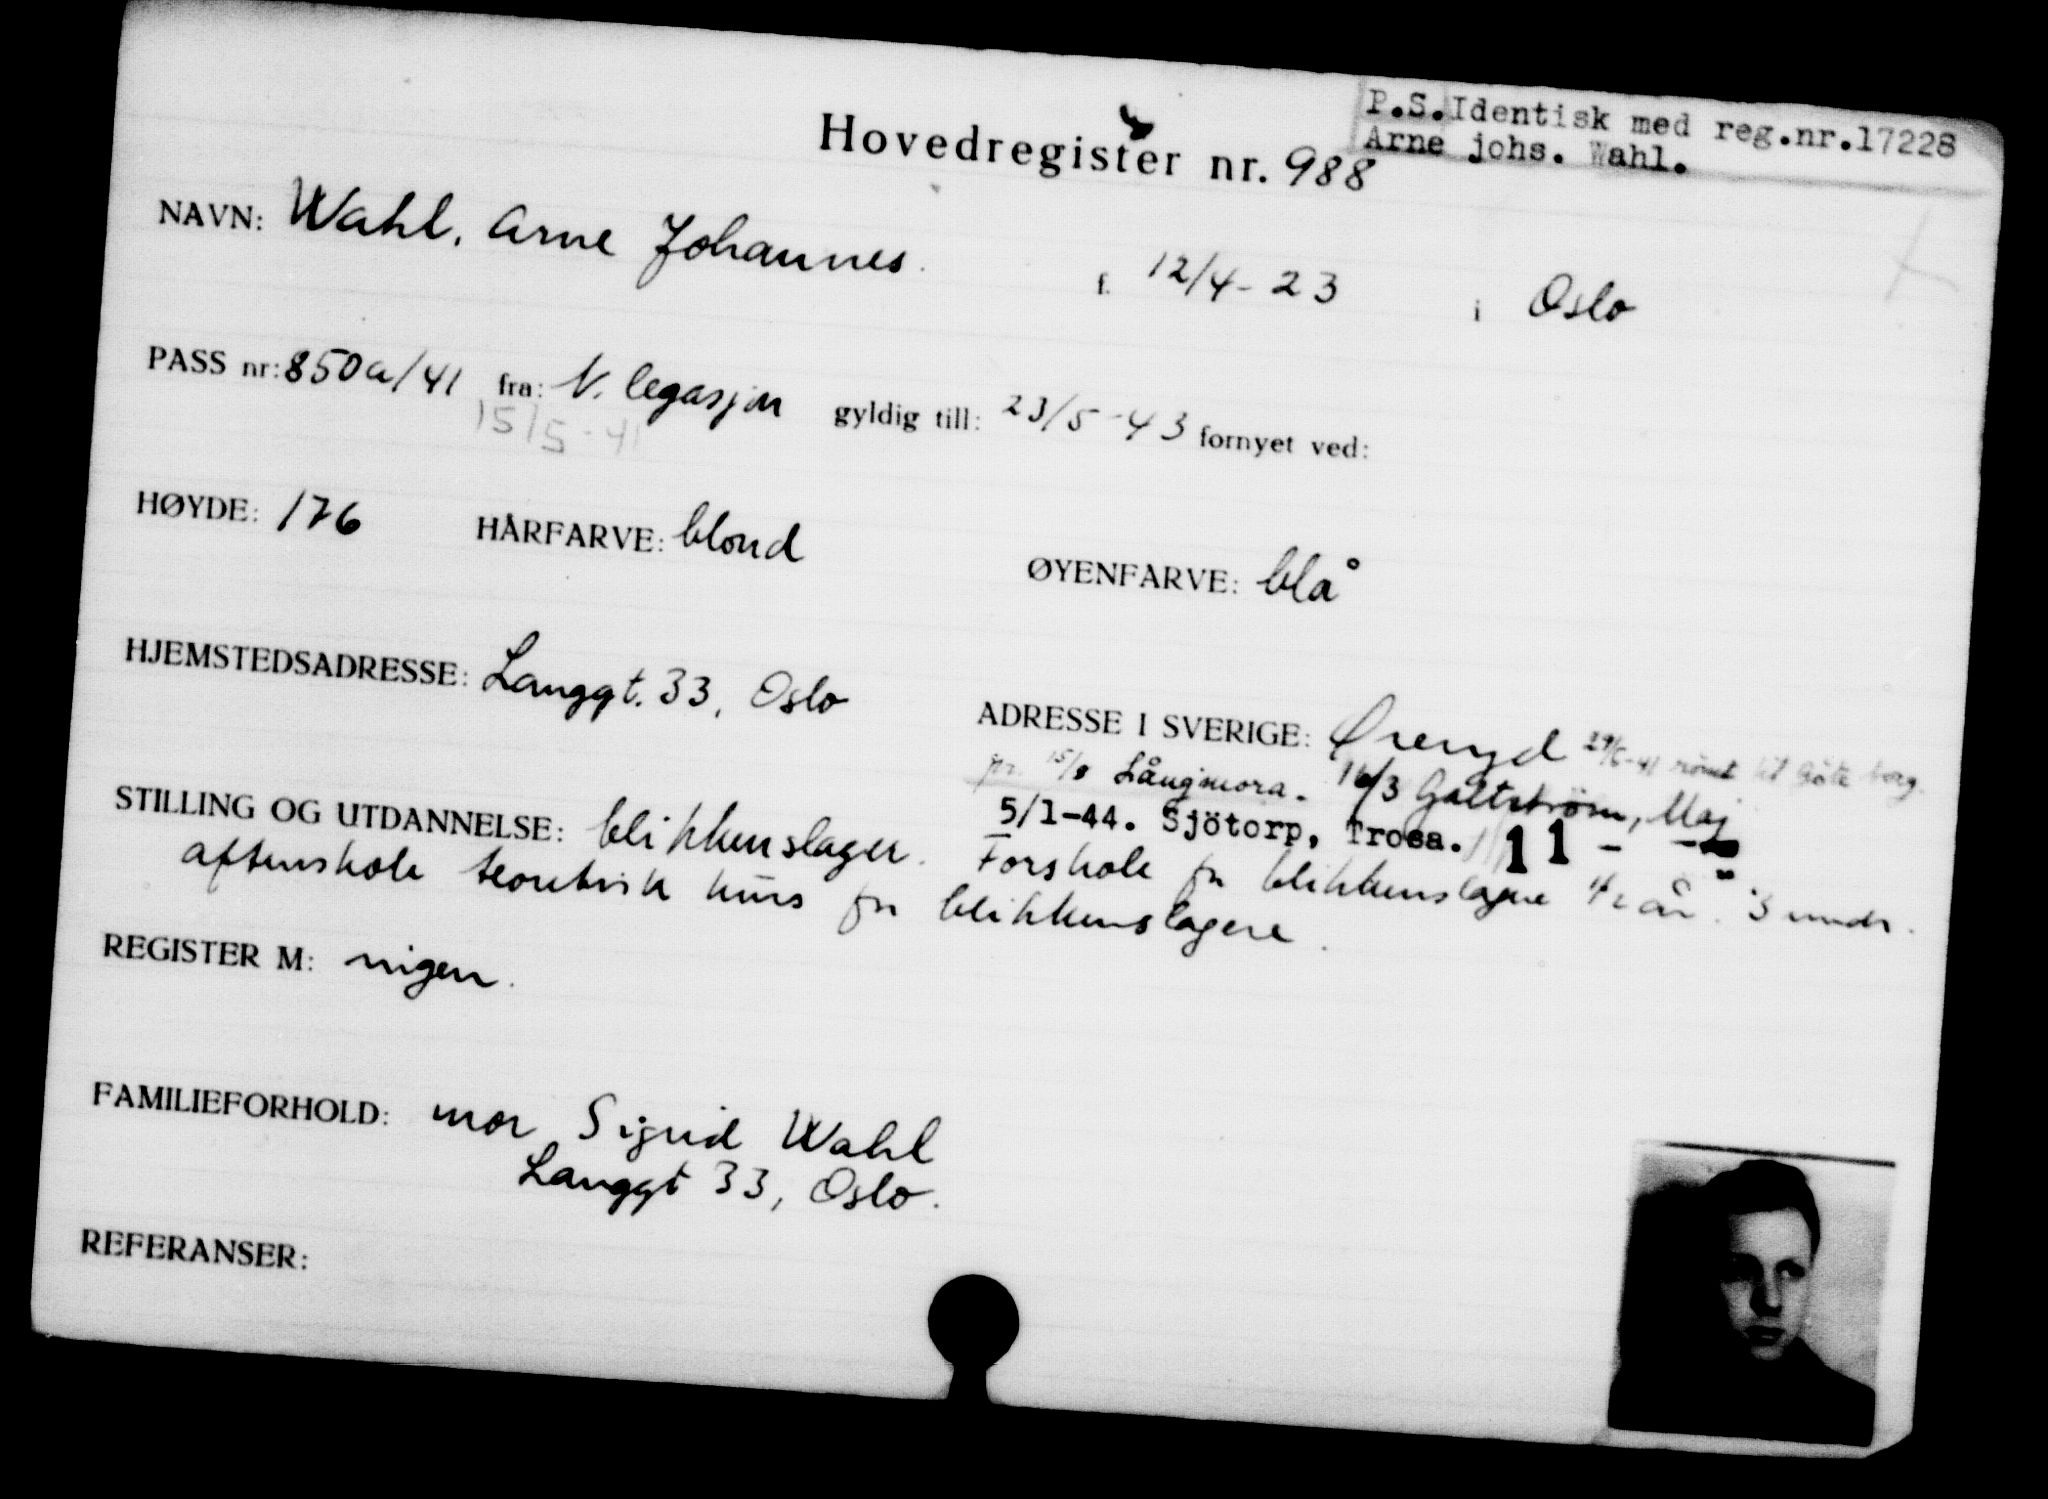 P.S. Identisk med reg.nr.17228
Arne johs. Wahl.
Hovedregister nr. 988
NAVN: Wahl, Arne Johannes. f. 12/4-23 i Oslo
PASS nr: 850a/41 fra: N. legasjon gyldig till: 23/5-43 fornyet ved:
15/5-41
HØYDE: 176 HÅRFARVE: blond ØYENFARVE: blå
HJEMSTEDSADRESSE: Langgt. 33, Oslo
ADRESSE I SVERIGE: Öreryd 29/5-41 til Göteborg.
15/8 Långmora. 16/3 Galtström, Maj
5/1-44. Sjötorp, Trosa. 11 -
STILLING OG UTDANNELSE: blikkenslager. Forskole for blikkenslagere 1/2 år. 3 mndr.
aftenskole teoretisk kurs for blikkenslagere.
REGISTER M: ingen.
FAMILIEFORHOLD: mor Sigrid Wahl
Langgt 33, Oslo.
REFERANSER: